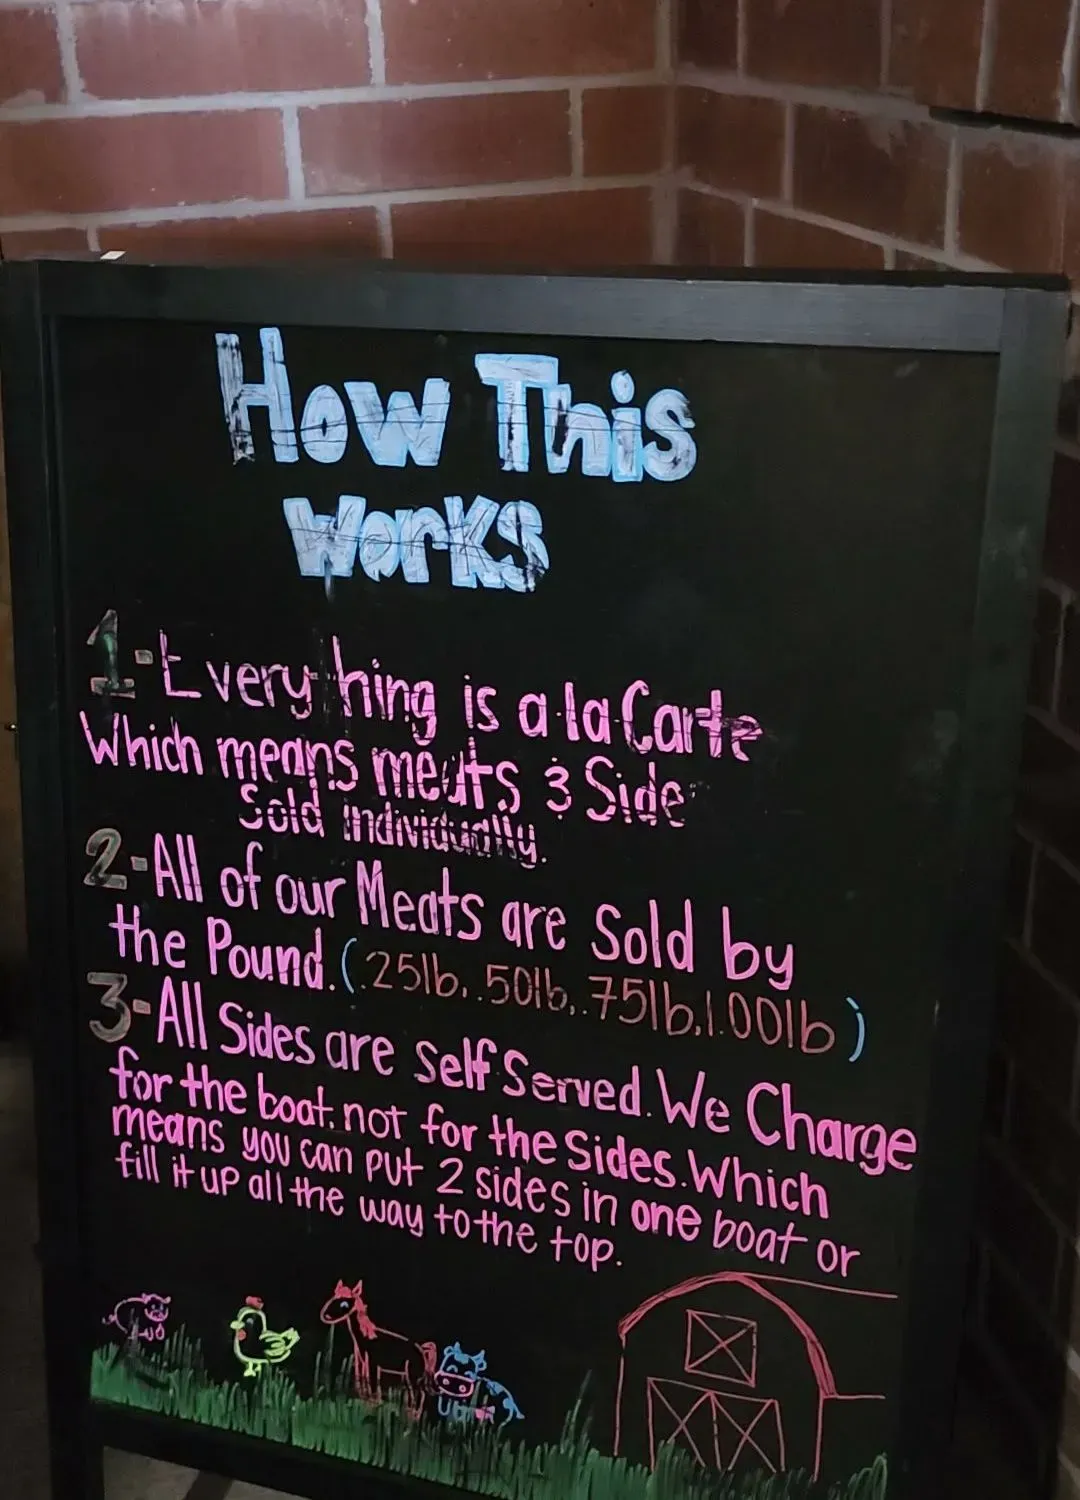 How This
Works
1-Everything is a la Carte
Which means meats & Side
Sold individually.
2-All of our Meats are Sold by
the Pound. (.25lb,.50lb,.75lb,1.00lb)
3-All Sides are Self Served. We Charge
for the boat, not for the Sides. Which
means you can put 2 sides in one boat or
fill it up all the way to the top.